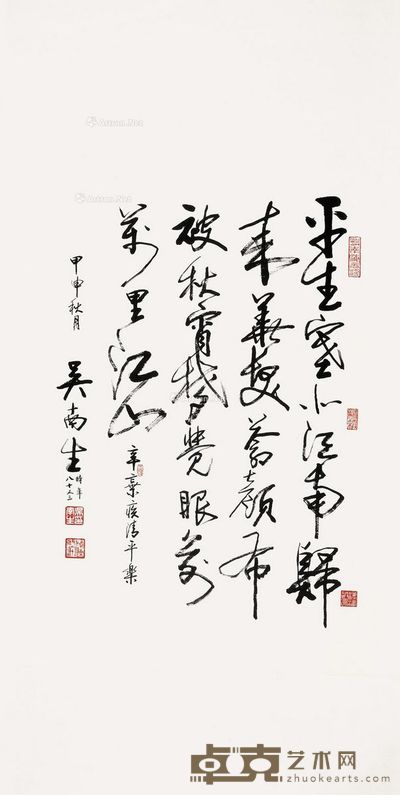 平生塞北江南歸
来華髮蒼顔布
被秋宵梦覺眼前
萬里江山
辛棄疾清平樂
甲申秋月
吴南生
時年
八十又三
Artron.Net
Artron.Net
卓克艺术网
zhuokearts.com